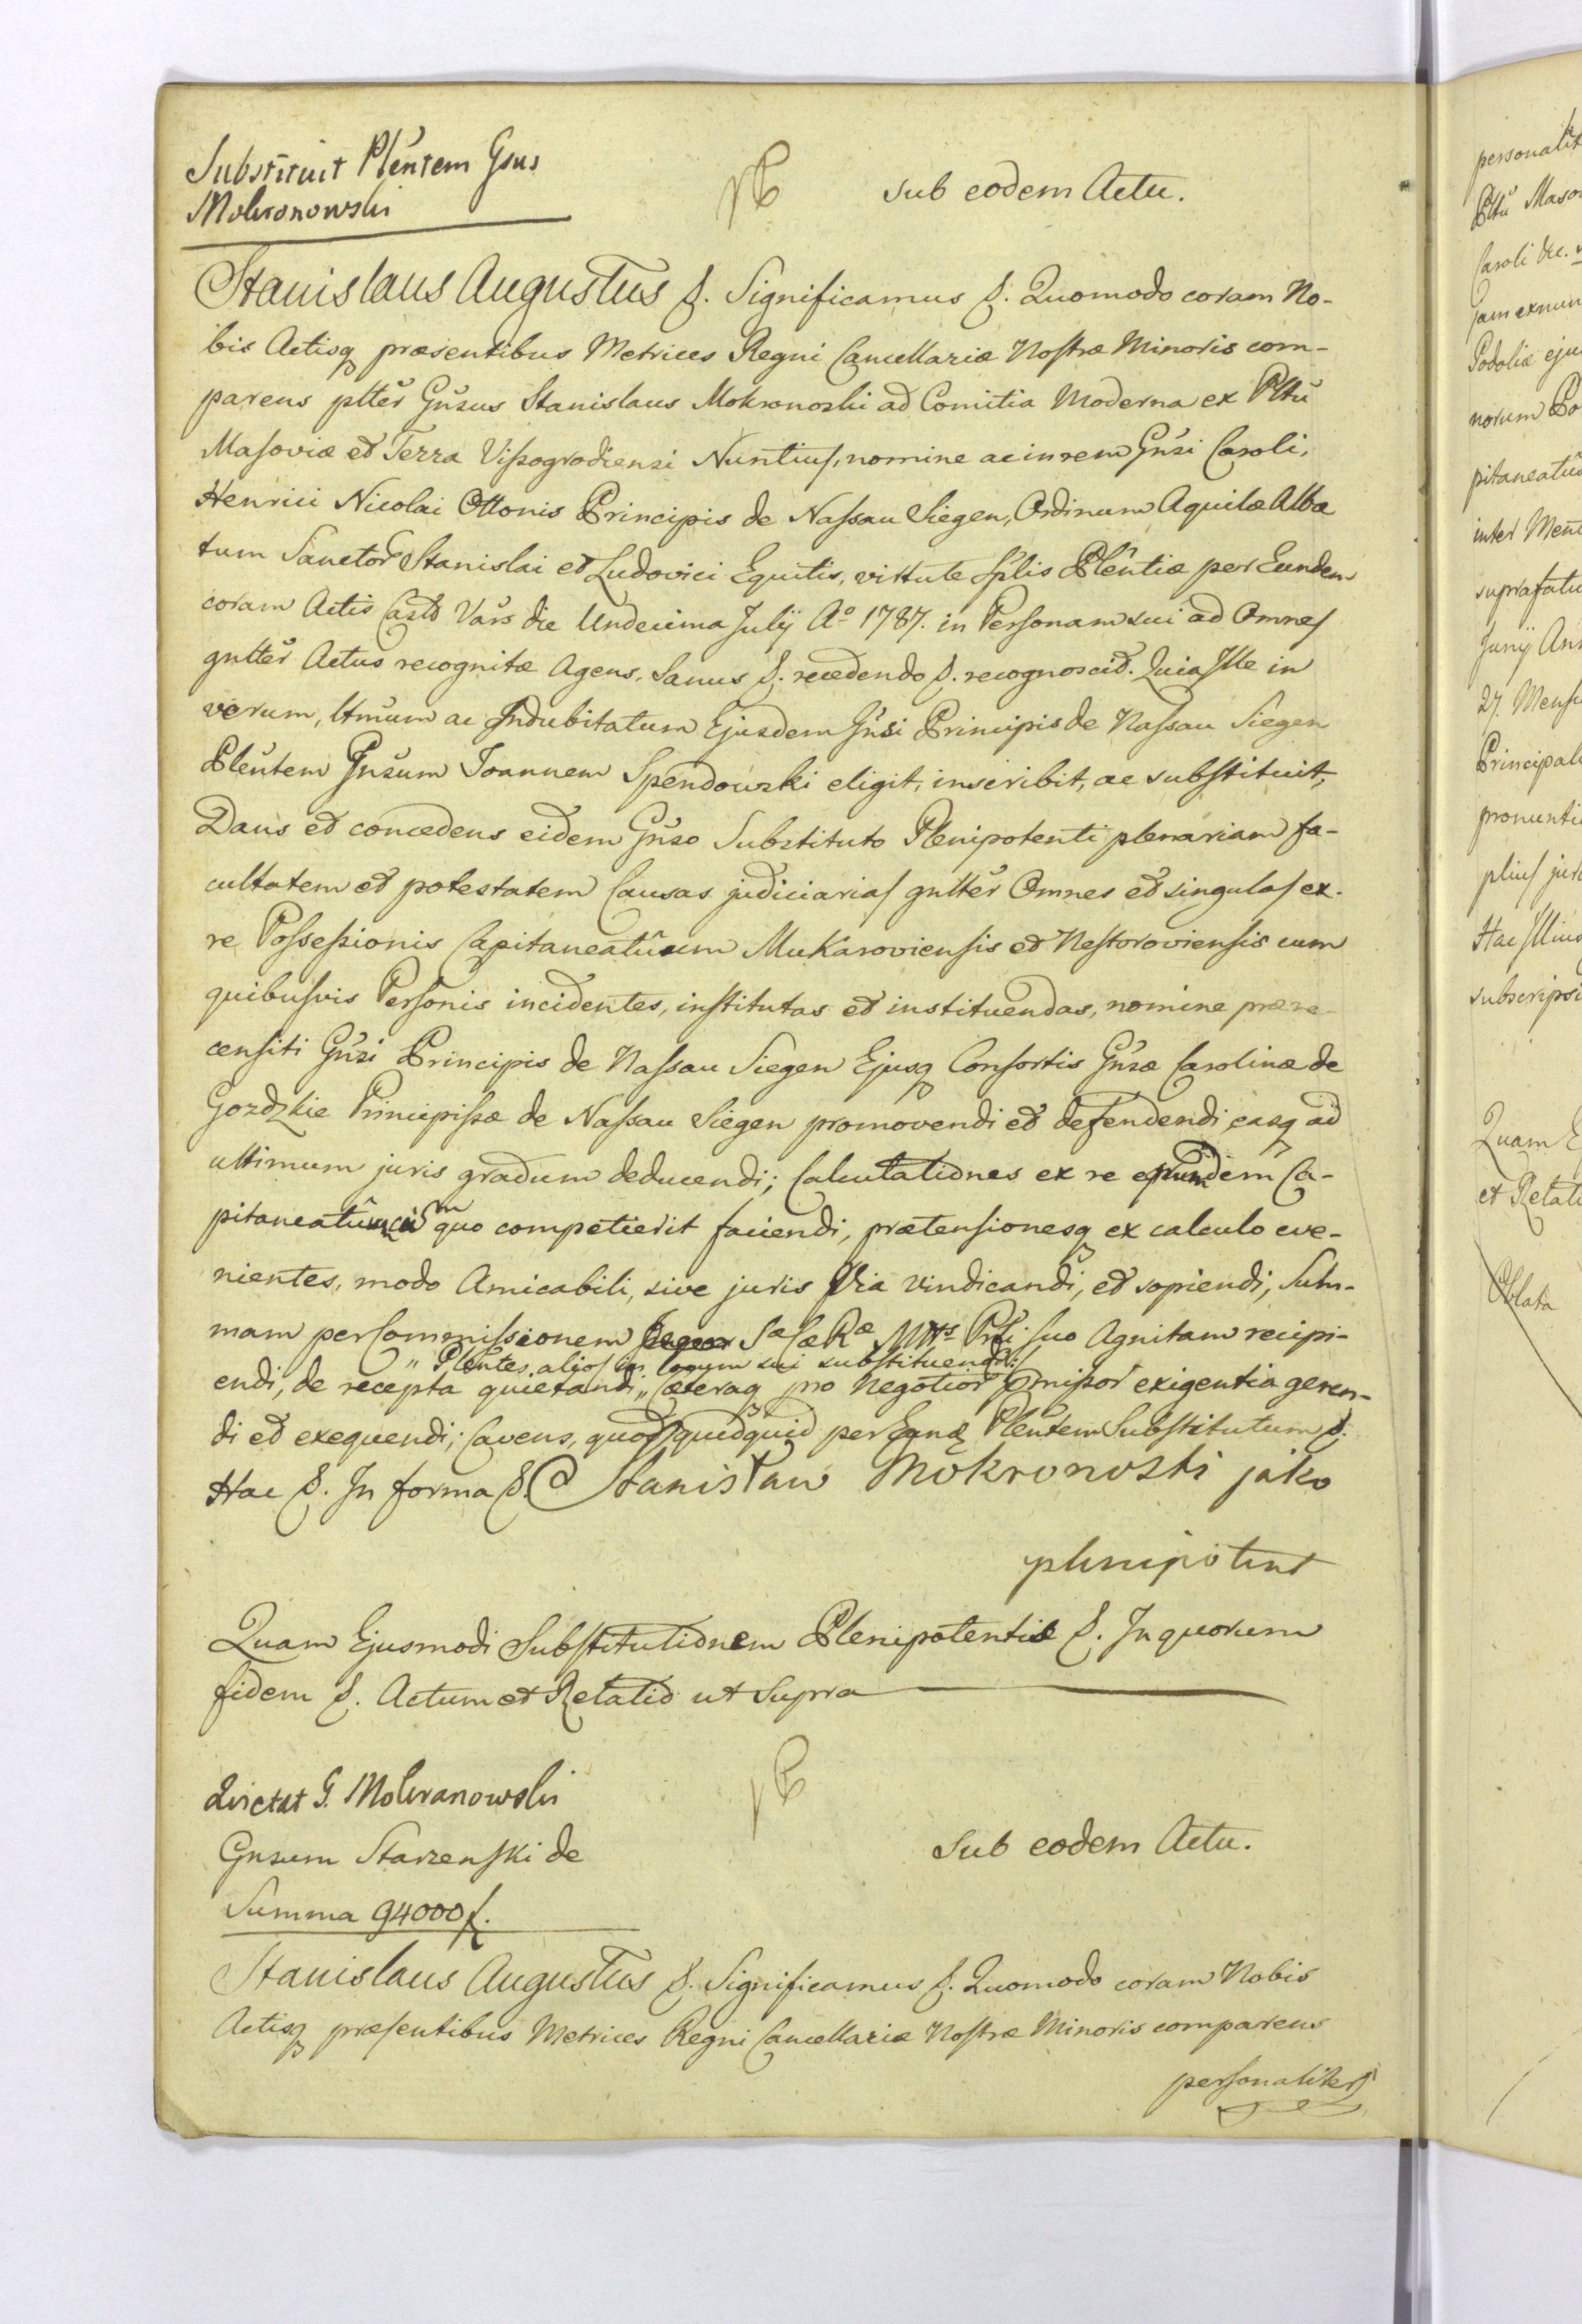 Substituit Plentem Gsus
Mokronowski
sub eodem Actu.
Stanislaus Augustus &. Significamus &. Quomodo coram No-
bis Actisq præsentibus Metrices Regni Cancellariæ Nostræ Minoris com-
parens pltter Gnsus Stanislaus Mokronoski ad Comitia Moderna ex Pltu
Masoviæ et Terra Vissogrodiensi Nuntius, nomine ac in rem Gnsi Caroli,
Henrici Nicolai Ottonis Principis de Nassau Siegen, Ordinum Aquilæ Albæ
tum Sanctor Stanislai et Ludovici Equitis, virtute Splis Plentiæ per Eundem
coram Actis Castr Vars die Undecima Julij Ao 1787. in Personam sui ad Omnes
gnlter Actus recognitæ Agens. Sanus &. recedendo &. recognoscit. Quia Ille in
verum, ltmum ac Indubitatum Ejusdem Gnsi Principis de Nassau Siegen
Plentem Gnsum Joannem Spendowski eligit, inscribit, ac substituit,
Dans et concedens eidem Gnso Substituto Plenipotenti plenariam fa-
cultatem et potestatem Causas judiciarias gnlter Omnes et singulas ex-
re Possessionis Capitaneatuum Mukaroviensis et Nestoroviensis cum
quibusvis Personis incidentes, institutas et instituendas, nomine prære-
censiti Gnsi Principis de Nassau Siegen Ejusq Consortis Gnsæ Carolinæ de
Gozdzkie Principissæ de Nassau Siegen promovendi et defendendi, easq ad
ultimum juris gradum deducendi; Calculationes ex re eorundem Ca-
pitaneatuum cum quo competierit faciendi, prætensionesq ex calculo eve-
nientes, modo Amicabili, sive juris Via vindicandi, et sopiendi, Sum-
mam per Commissionem Sæ Cæ Ræ Mttis Prli suo Agnitam recipi-
" Plentes alios in locum sui substituendi
endi, de recepta quietandi " Cæteraq pro Negotior pmissor exigentia geren-
di et exequendi; Cavens, quod quidquid per Eund Plentem Substitutum &.
Hac &. In forma &. Stanisław Mokronoski jako
plenipotent
Quam Ejusmodi Substitutionem Plenipotentiæ &. In quorum
fidem &. Actum et Relatio ut Supra
Quietat G. Mokranowski
Gnsum Starzenski de
Summa 94000 f.
Sub eodem Actu.
Stanislaus Augustus &. Significamus &. Quomodo coram Nobis
Actisq præsentibus Metrices Regni Cancellariæ Nostræ Minoris comparens
personaliter